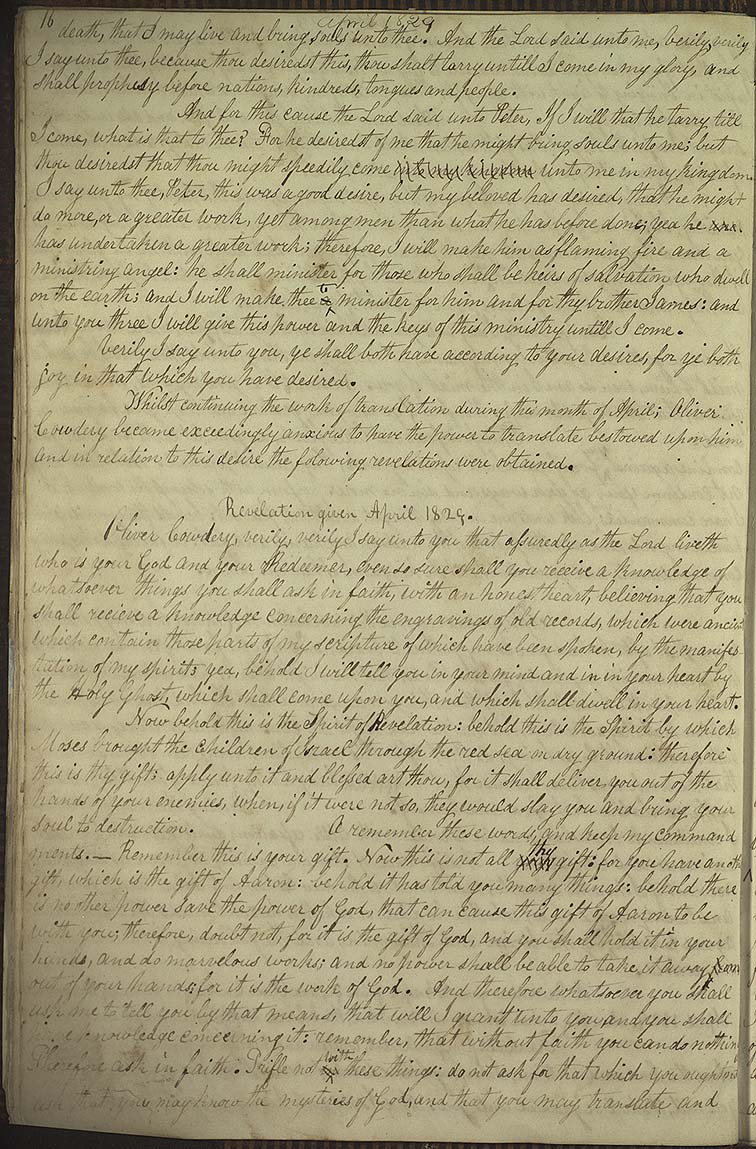 16
April 1829
death, that I may live and bring souls unto thee. And the Lord said unto me, verily, verily
I say unto thee, because thou desiredst this, thou shalt tarry untill I come in my glory, and
shall prophesy before nations, kindreds, tongues and people.
And for this cause the Lord said unto Peter, If I will that he tarry till
I come, what is that to thee? For he desiredst of me that he might bring souls unto me; but
thou desiredst that thou might speedily come into my kingdom unto me in my kingdom
I say unto thee, Peter, this was a good desire, but my beloved has desired, that he might
do more, or a greater work, yet among men than what he has before done; yea he
has undertaken a greater work; therefore, I will make him as flaming fire and a
ministring angel: he shall minister for those who shall be heirs of salvation who dwell
on the earth; and I will make thee to minister for him and for thy brother James: and
unto you three I will give this power and the keys of this ministry untill I come.
Verily I say unto you, ye shall both have according to your desires, for ye both
joy in that which you have desired.
Whilst continuing the work of translation during this month of April; Oliver
Cowdery became exceedingly anxious to have the power to translate bestowed upon him
and in relation to this desire the folowing revelations were obtained.
Revelation given April 1829.
Oliver Cowdery, verily, verily I say unto you that assuredly as the Lord liveth
who is your God and your Redeemer, even so sure shall you receive a knowledge of
whatsoever things you shall ask in faith, with an honest heart, believing that you
shall recieve a knowledge concerning the engravings of old records, which were ancie
which contain those parts of my scripture of which have been spoken, by the manifes
tation of my spirit; yea, behold I will tell you in your mind and in in your heart by
the Holy Ghost, which shall come upon you, and which shall dwell in your heart.
Now behold this is the Spirit of Revelation: behold this is the Spirit by which
Moses brought the children of Israel through the red sea on dry ground: therefore
this is thy gift: apply unto it and blessed art thou, for it shall deliver you out of the
hands of your enemies, when, if it were not so, they would slay you and bring your
soul to destruction. O remember these words, and keep my command
ments. — Remember this is your gift. Now this is not all thy gift: for you have anoth
gift, which is the gift of Aaron: behold it has told you many things: behold there
is no other power save the power of God, that can cause this gift of Aaron to be
with you; therefore, doubt not, for it is the gift of God, and you shall hold it in your
hands, and do marvelous works; and no power shall be able to take it away from
out of your hands; for it is the work of God. And therefore whatsoever you shall
ask me to tell you by that means, that will I grant unto you and you shall
knowledge concerning it: remember, that without faith you can do nothin
Therefore ask in faith. Trifle not with these things: do not ask for that which you ought no
ask that you may know the mysteries of God, and that you may translate and